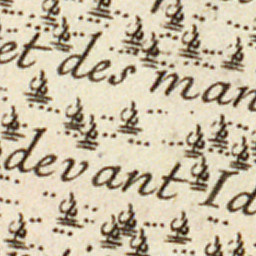 et des man
devant Id